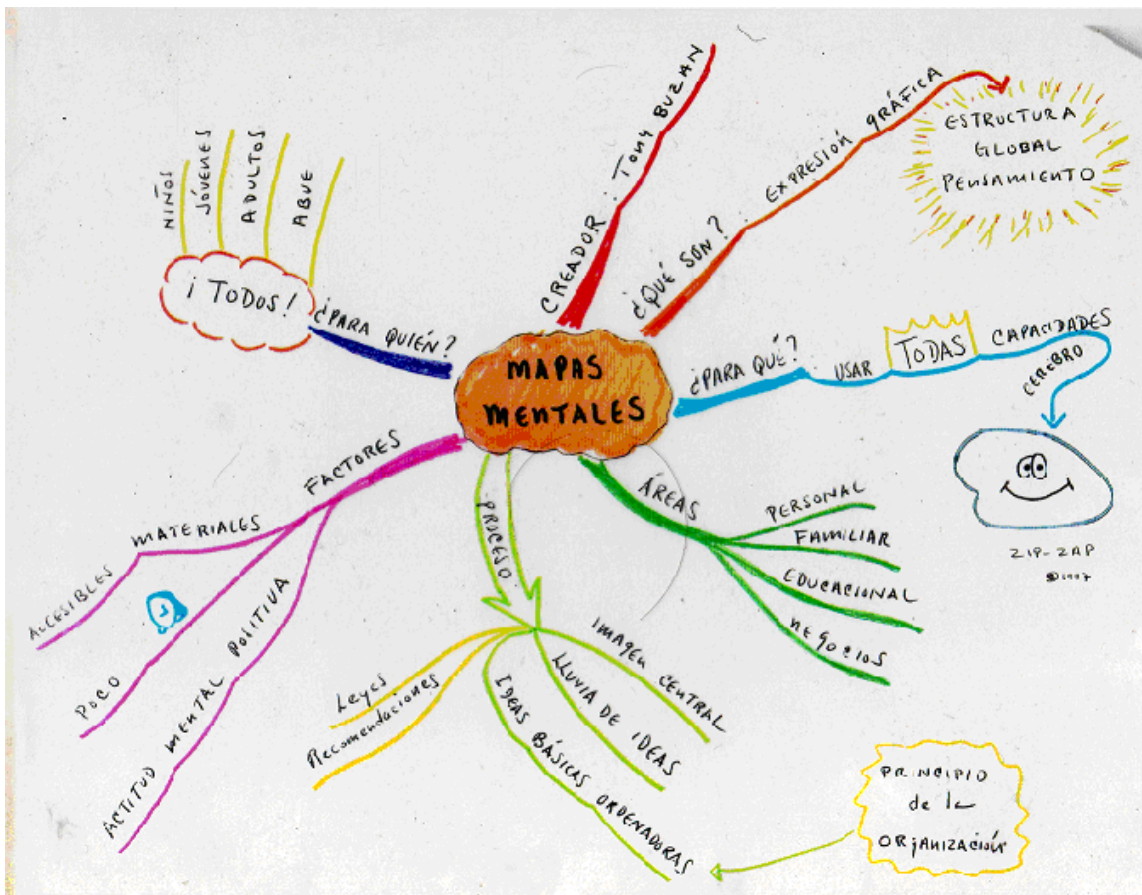 MAPAS
MENTALES
CREADOR : TONY BUZAN
¿QUÉ SON? : EXPRESIÓN GRÁFICA
ESTRUCTURA
GLOBAL
PENSAMIENTO
¿PARA QUÉ? USAR TODAS CAPACIDADES
CEREBRO
ZIP-ZAP
©1997
ÁREAS
PERSONAL
FAMILIAR
EDUCACIONAL
NEGOCIOS
PROCESO
IMAGEN CENTRAL
LLUVIA DE IDEAS
IDEAS BÁSICAS ORDENADORAS
PRINCIPIO
de la
ORGANIZACIÓN
Leyes
Recomendaciones
FACTORES
MATERIALES
ACCESIBLES
POCO
ACTITUD MENTAL POSITIVA
¿PARA QUIÉN?
¡TODOS!
NIÑOS
JÓVENES
ADULTOS
ABUE